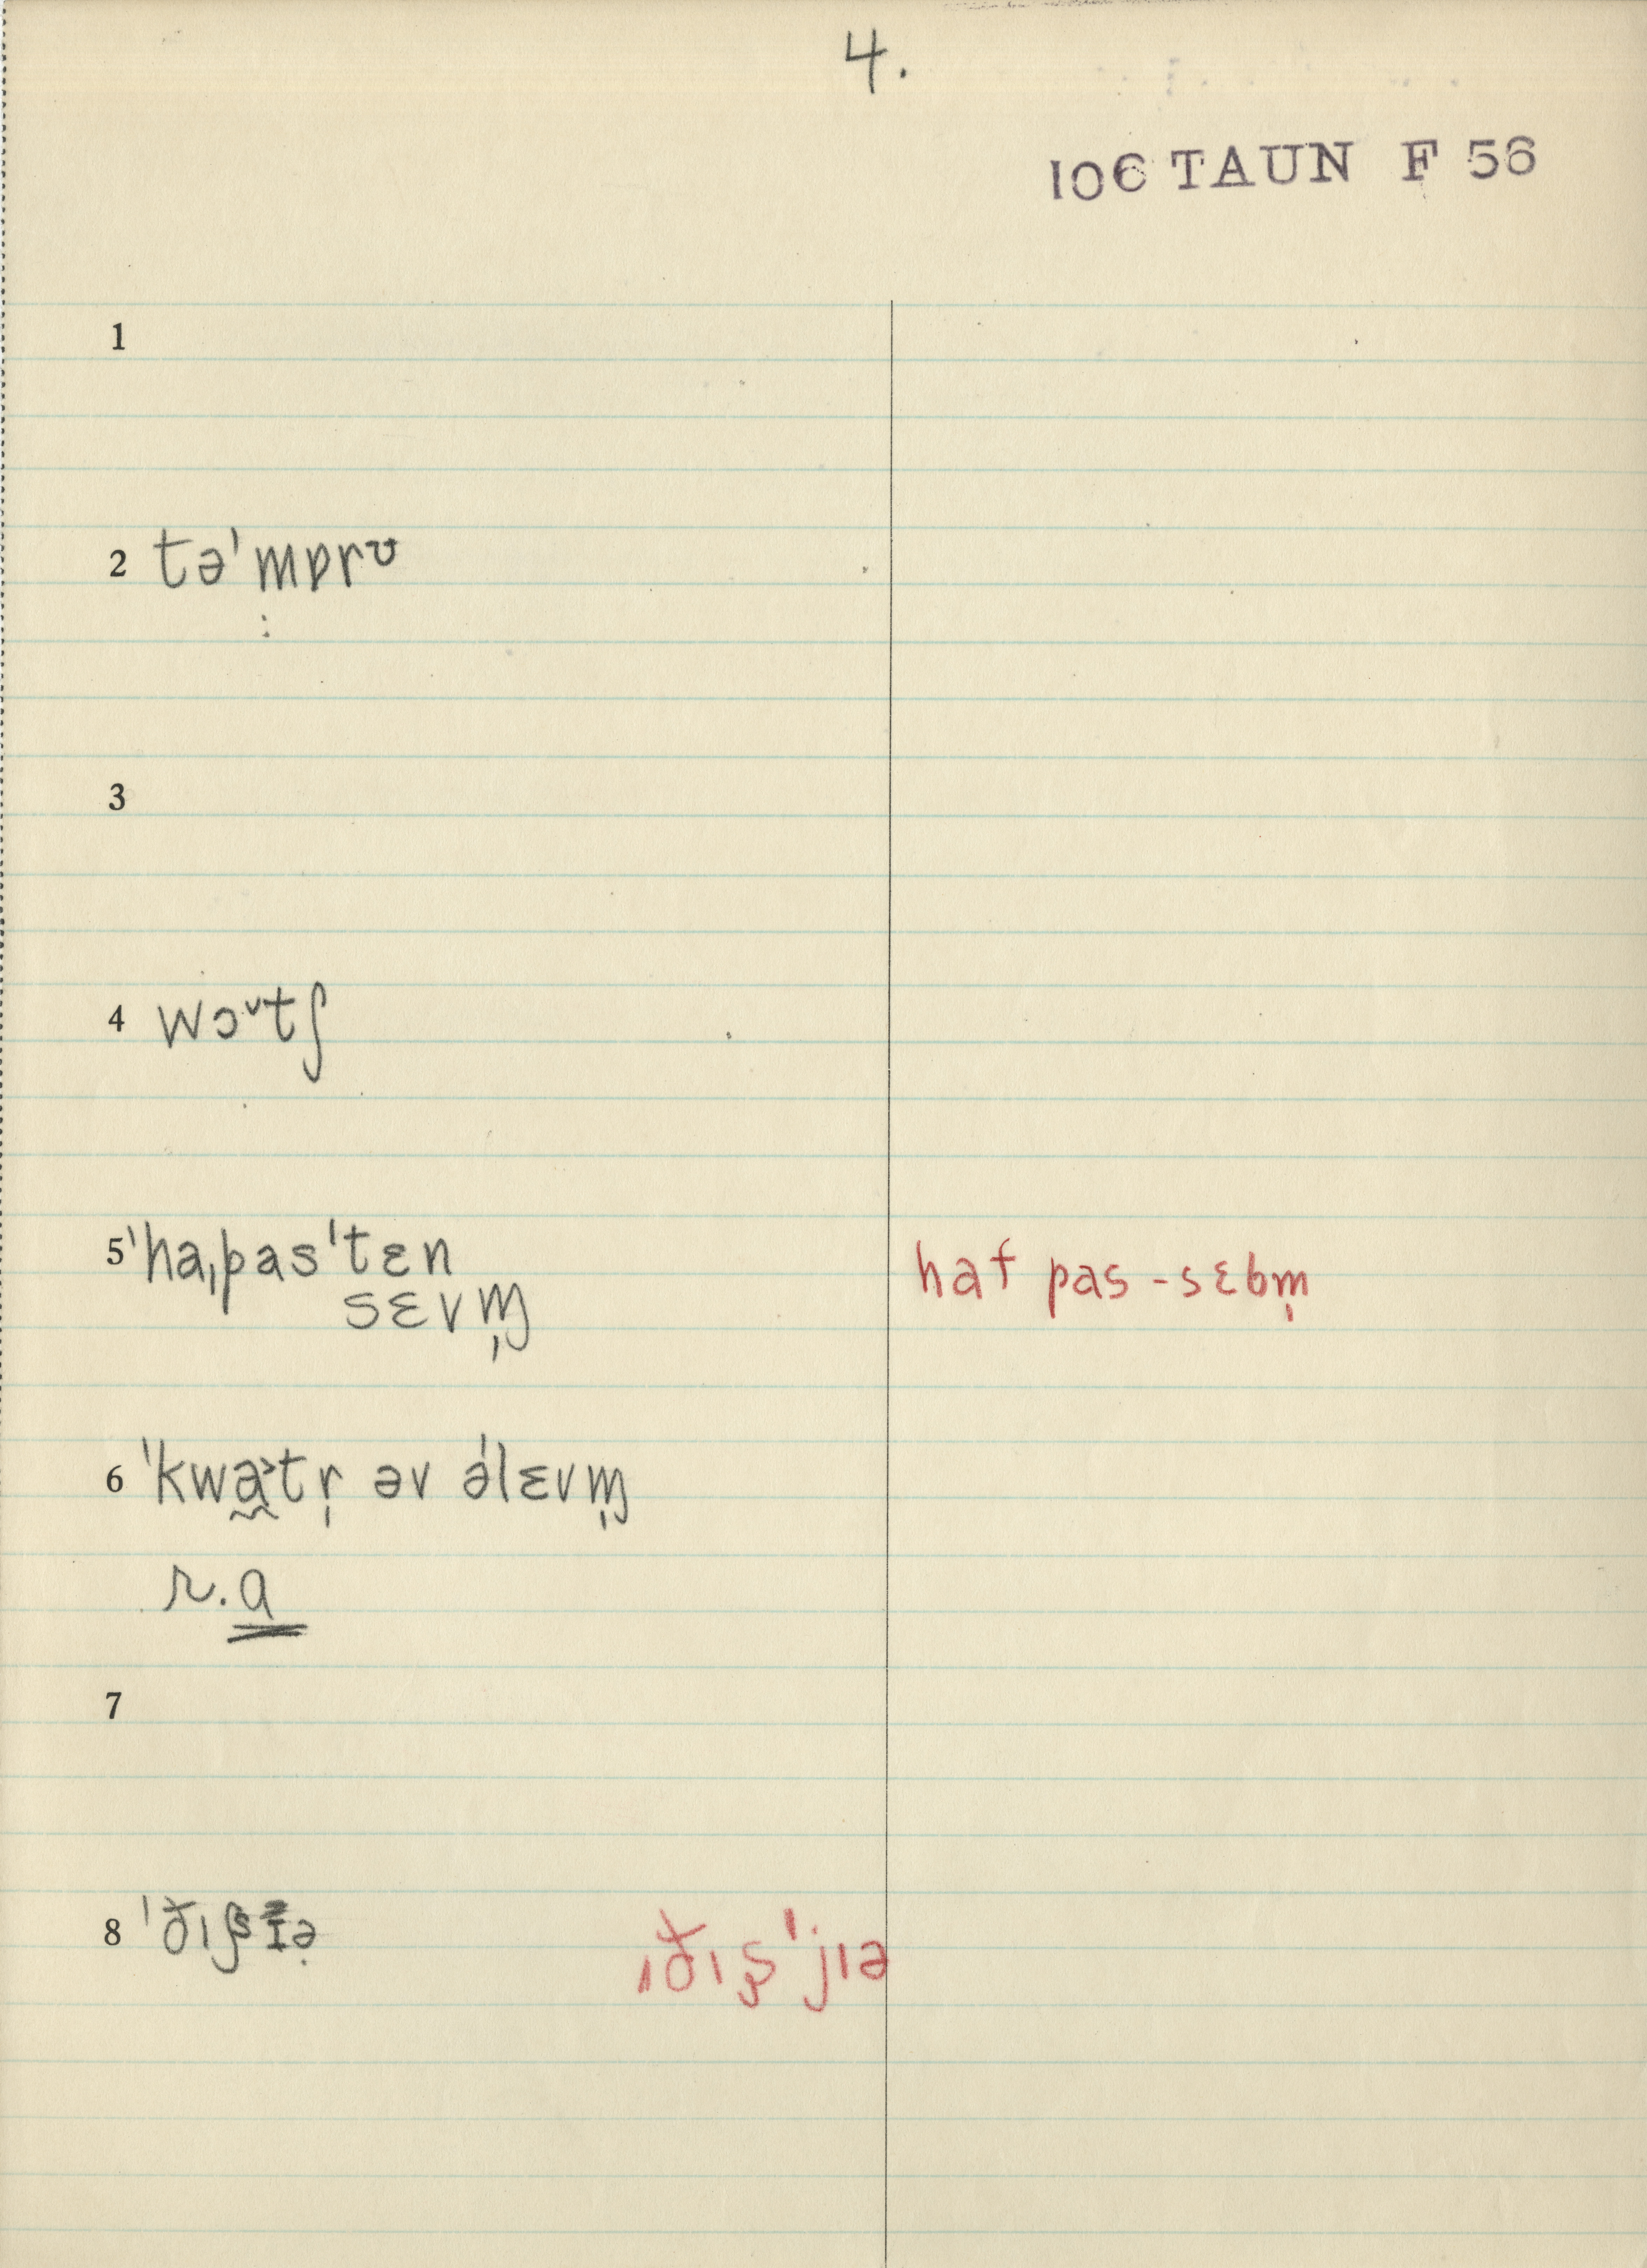 4.
106 TAUN F 56
1
2 tə'mɒrʊ
3
4 wɔ˅tʃ
5 'ha,pas'tɛn
sɛvm̩ haf pas-sɛbm̩
6 'kwa̰˃tr̩ əv ə'lɛvm̩
r.a
7
8 ˌðɪʂ'jɪə